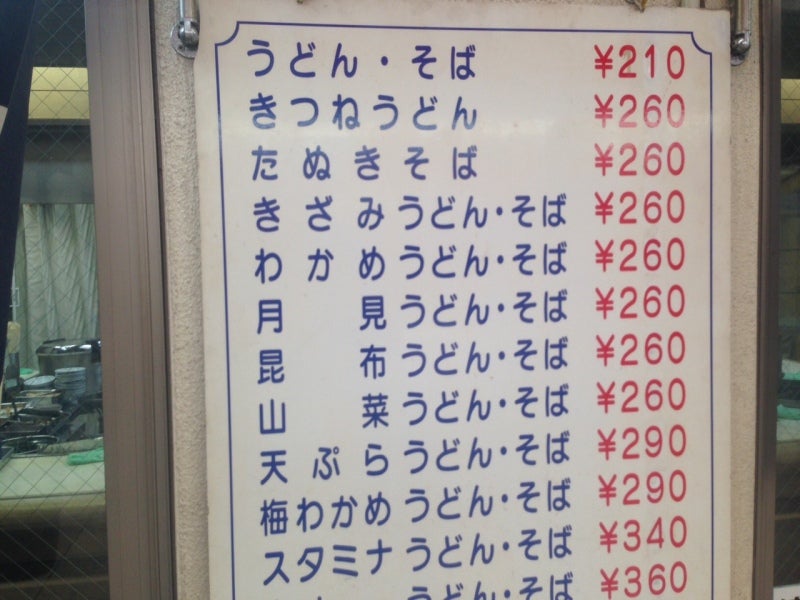 うどん・そば ¥210
きつねうどん ¥260
たぬきそば ¥260
きざみうどん・そば ¥260
わかめうどん・そば ¥260
月見うどん・そば ¥260
昆布うどん・そば ¥260
山菜うどん・そば ¥260
天ぷらうどん・そば ¥290
梅わかめうどん・そば ¥290
スタミナうどん・そば ¥340
うどん・そば ¥360